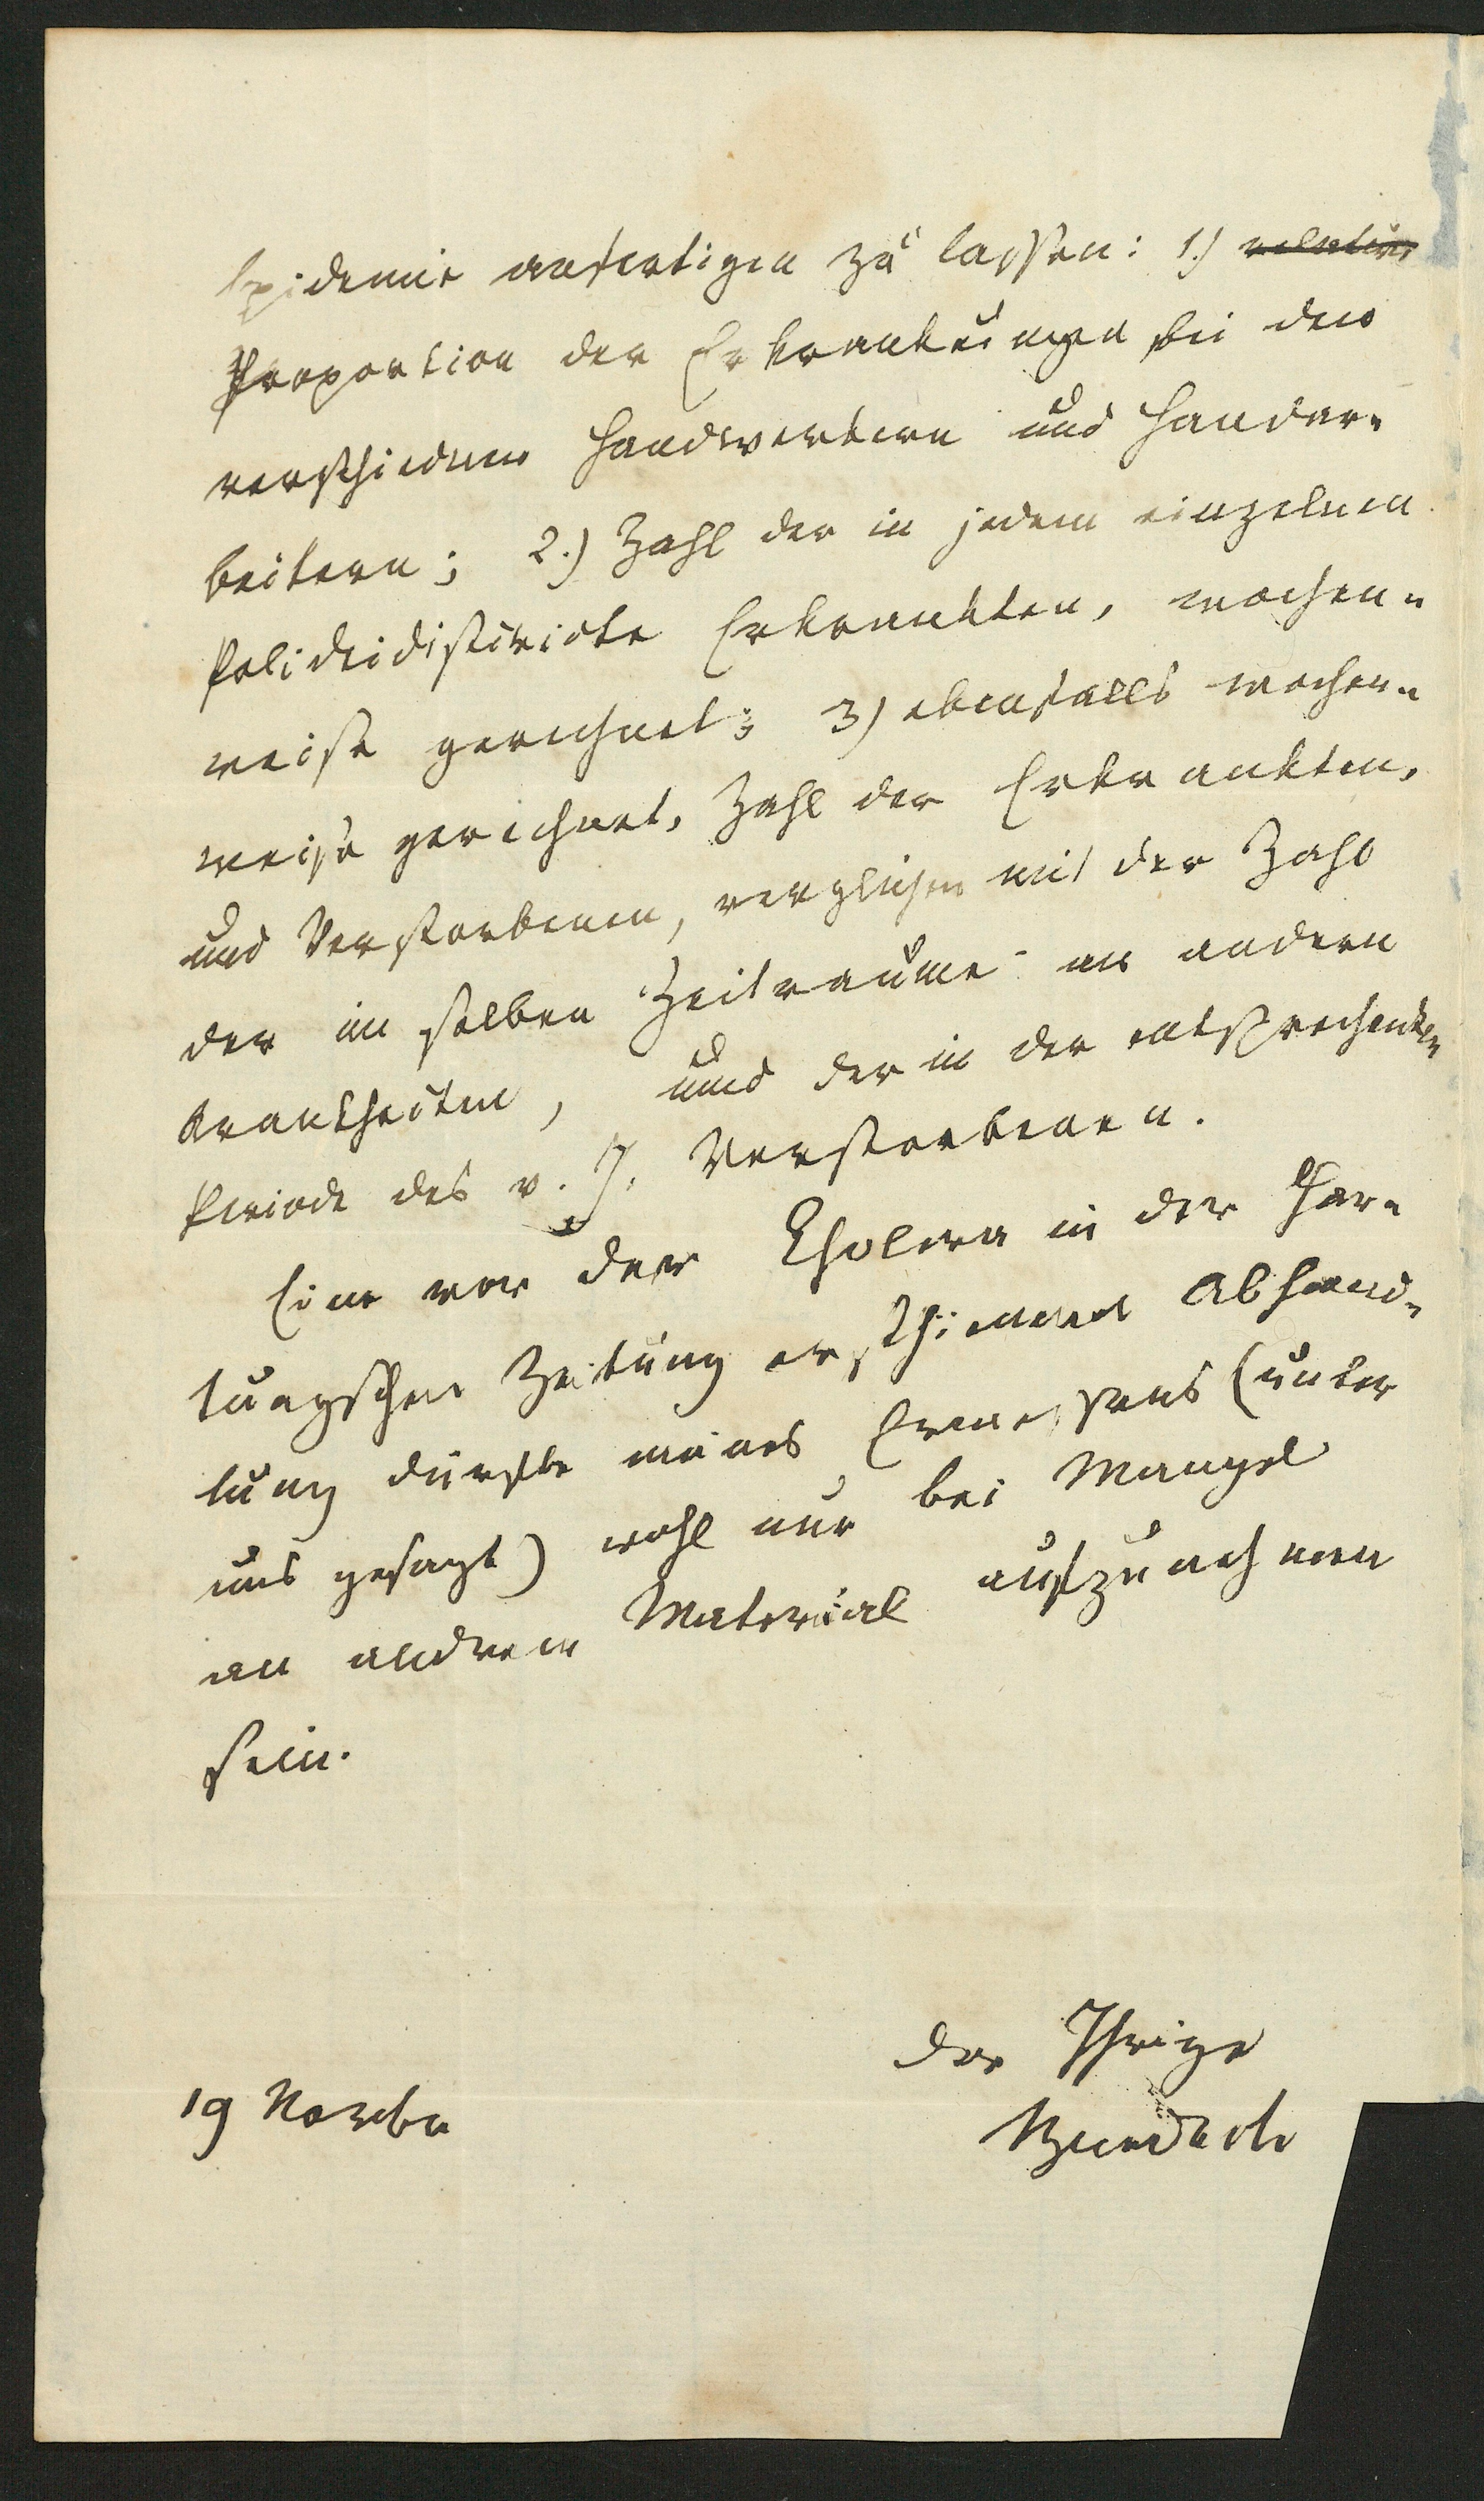 Epidemie anfertigen zu lassen: 1.) relative
Proportion der Erkrankungen bei den
verschiednen Handwerkern und Handar-
beitern; 2.) Zahl der in jedem einzelnen
Polizeidistricte Erkrankten, wochen-
weise gerechnet; 3) ebenfalls wochen-
weise gerechnet, Zahl der Erkrankten,
und Verstorbenen, verglichen mit der Zahl
der im selben Zeitraume an andern
Krankheiten, und der in der entsprechenden
Periode des v. J. Verstorbenen.
Eine von der Cholera in der Har-
tungschen Zeitung erschienene Abhand-
lung dürfte meines Ermessens (unter
uns gesagt) wohl nur bei Mangel
an anderem Material aufzunehmen
sein.
Der Ihrige
19 Novbr
Burdach